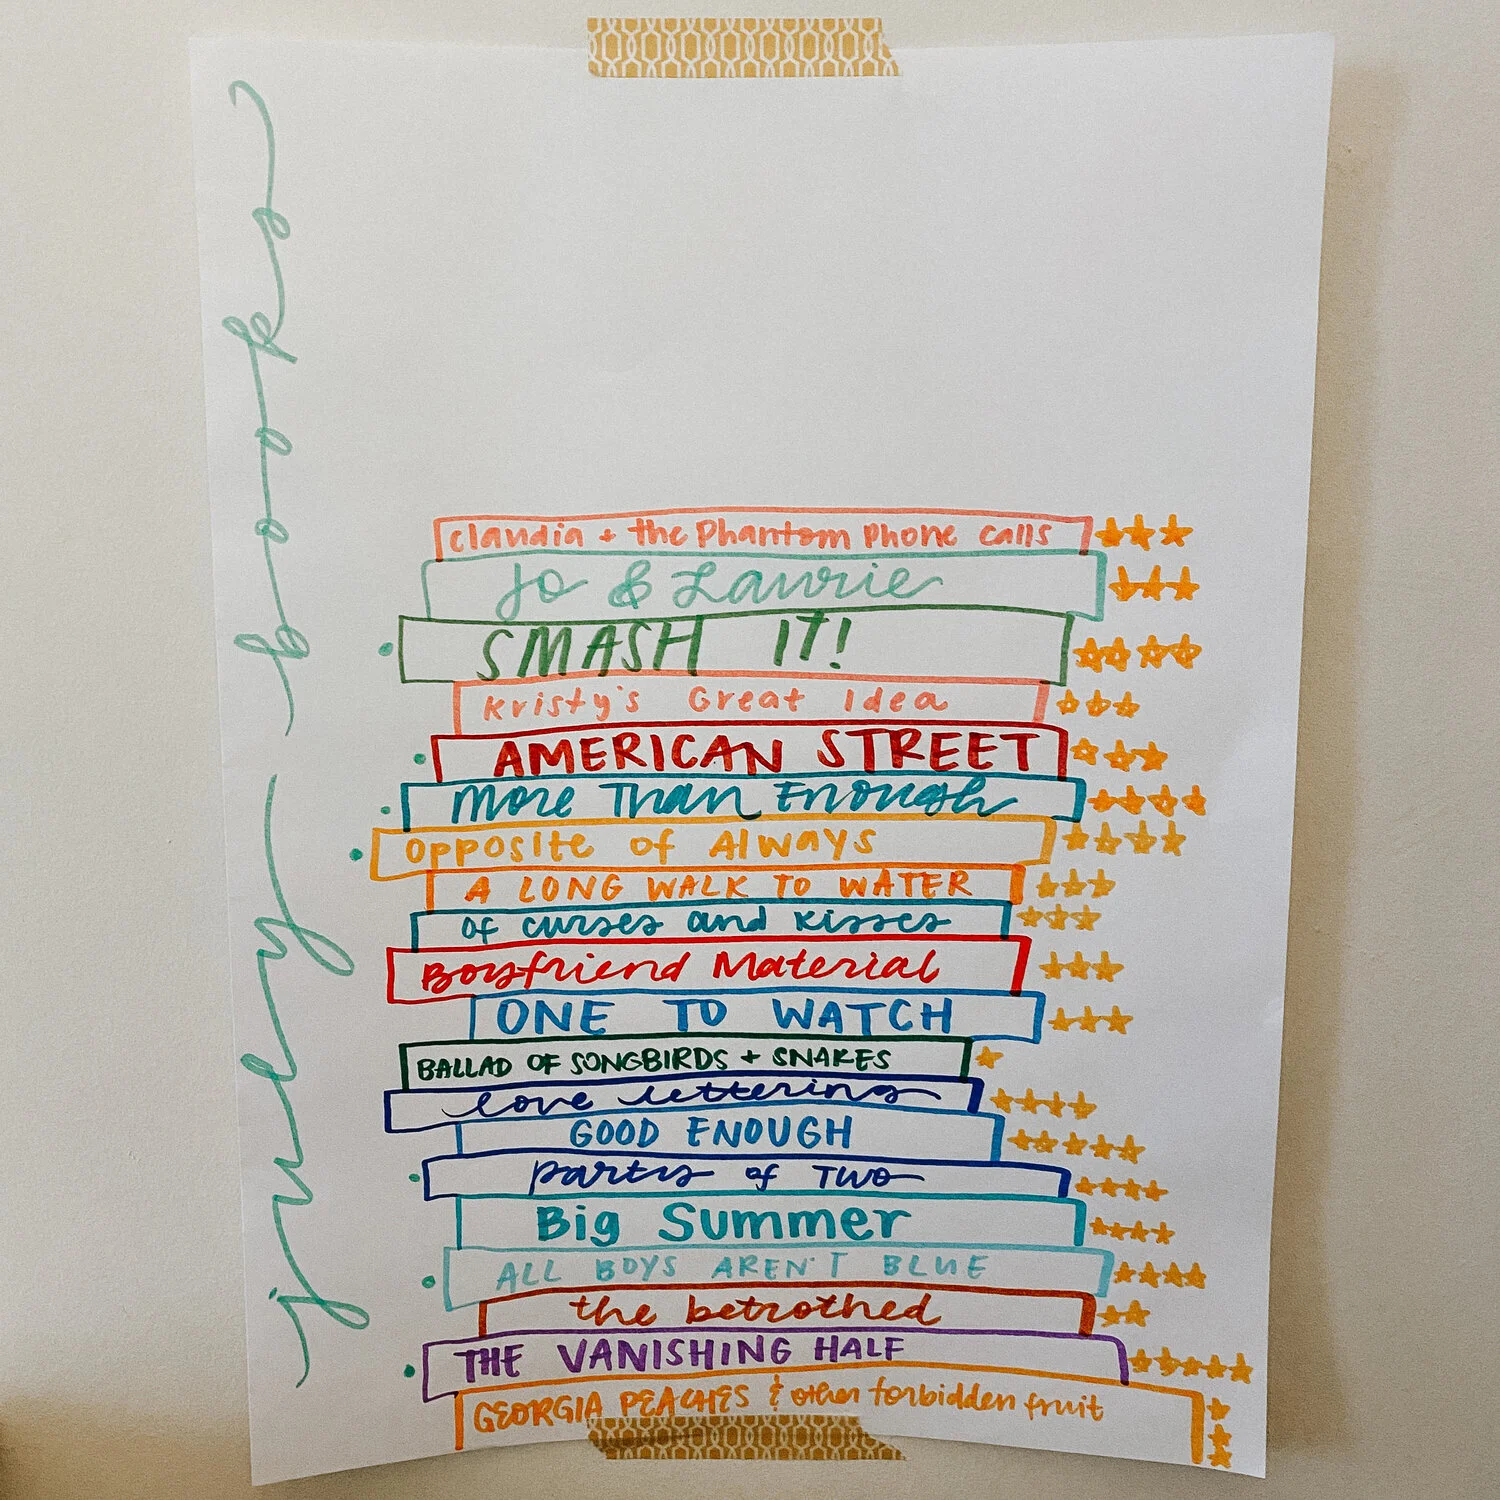 july books
claudia + the Phantom Phone calls
Jo & Laurie
SMASH IT!
Kristy's Great Idea
AMERICAN STREET
More Than Enough
Opposite of Always
A LONG WALK TO WATER
of curses and kisses
Boyfriend Material
ONE TO WATCH
BALLAD OF SONGBIRDS + SNAKES
love lettering
GOOD ENOUGH
party of Two
Big Summer
ALL BOYS AREN'T BLUE
the betrothed
THE VANISHING HALF
GEORGIA PEACHES & other forbidden fruit